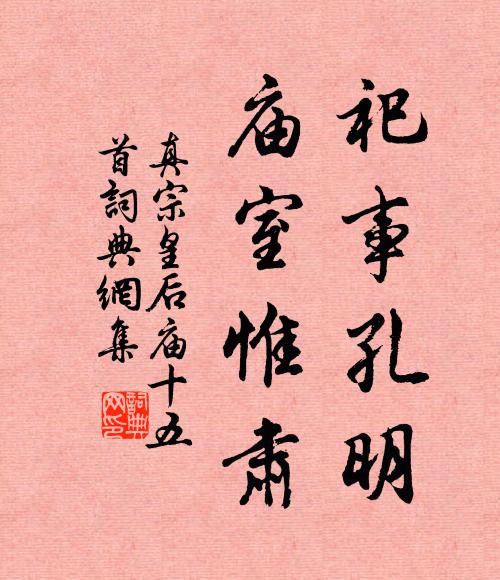 祀事孔明
庙室惟肃
真宗皇后庙十五
首詞典網集
詞典
网印